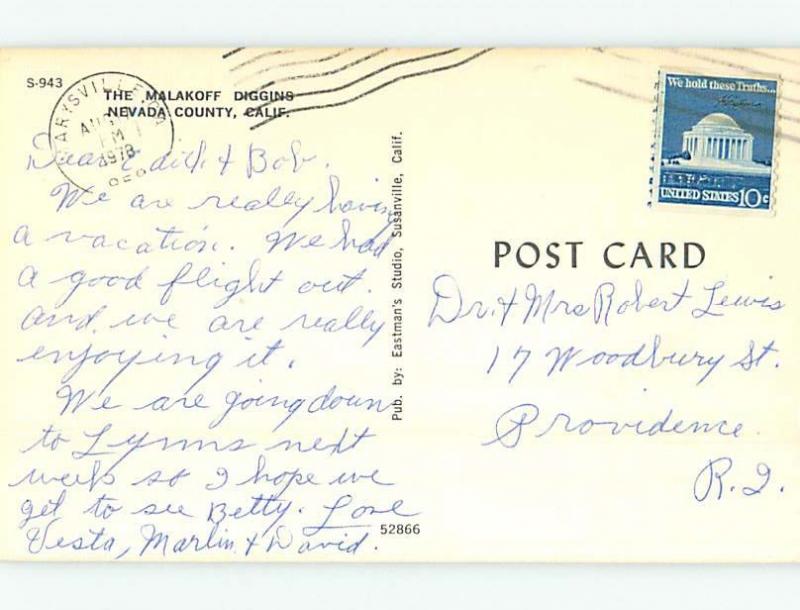 S-943
THE MALAKOFF DIGGINS
NEVADA COUNTY, CALIF.
MARYSVILLE
PM
1978
We hold these Truths...
UNITED STATES 10c
POST CARD
Dear Edith & Bob.
We are really having
a vacation. We had
a good flight out.
and, we are really
enjoying it.
We are going down
to Lynns next
week so I hope we
get to see Betty. Love
Vesta, Marlin & David.
Pub. by: Eastman's Studio, Susanville, Calif.
52866
Dr. & Mrs Robert Lewis
17 Woodbury St.
Providence
R.I.